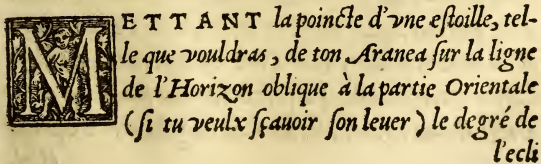 METTANT la poincte d'vne eſtoille, tel-
le que vouldras, de ton Aranea ſur la ligne
de l'Horizon oblique à la partie Orientale
(ſi tu veulx ſçauoir ſon leuer) le degré de
l'ecli